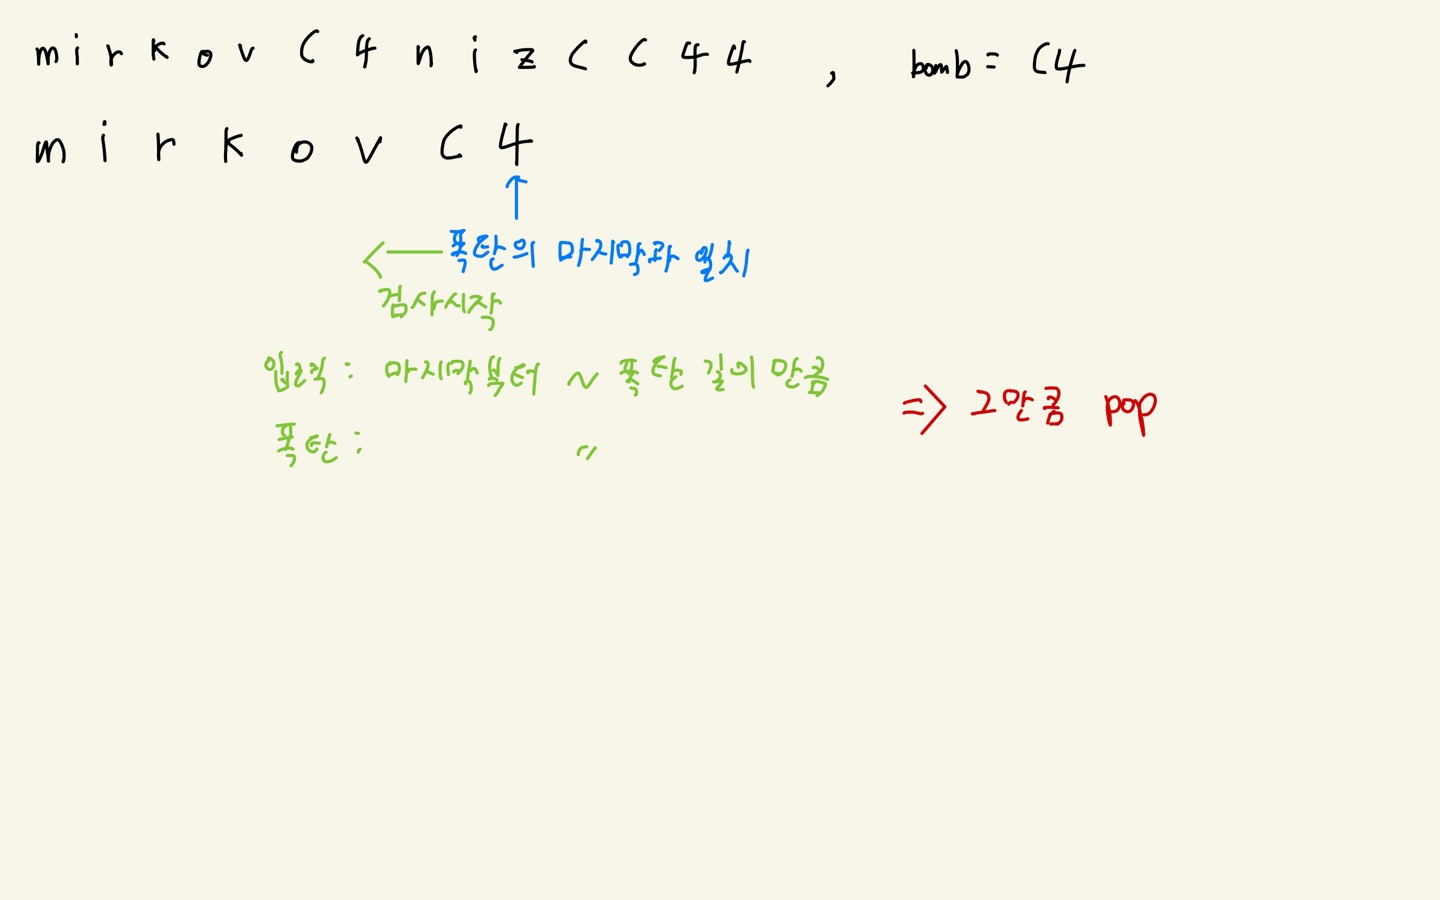 mirkovC4nizCC44, bomb = C4
mirkovC4
폭탄의 마지막과 일치
검사시작
입력: 마지막부터 ~ 폭탄 길이 만큼
=> 그만큼 pop
폭탄: 〃